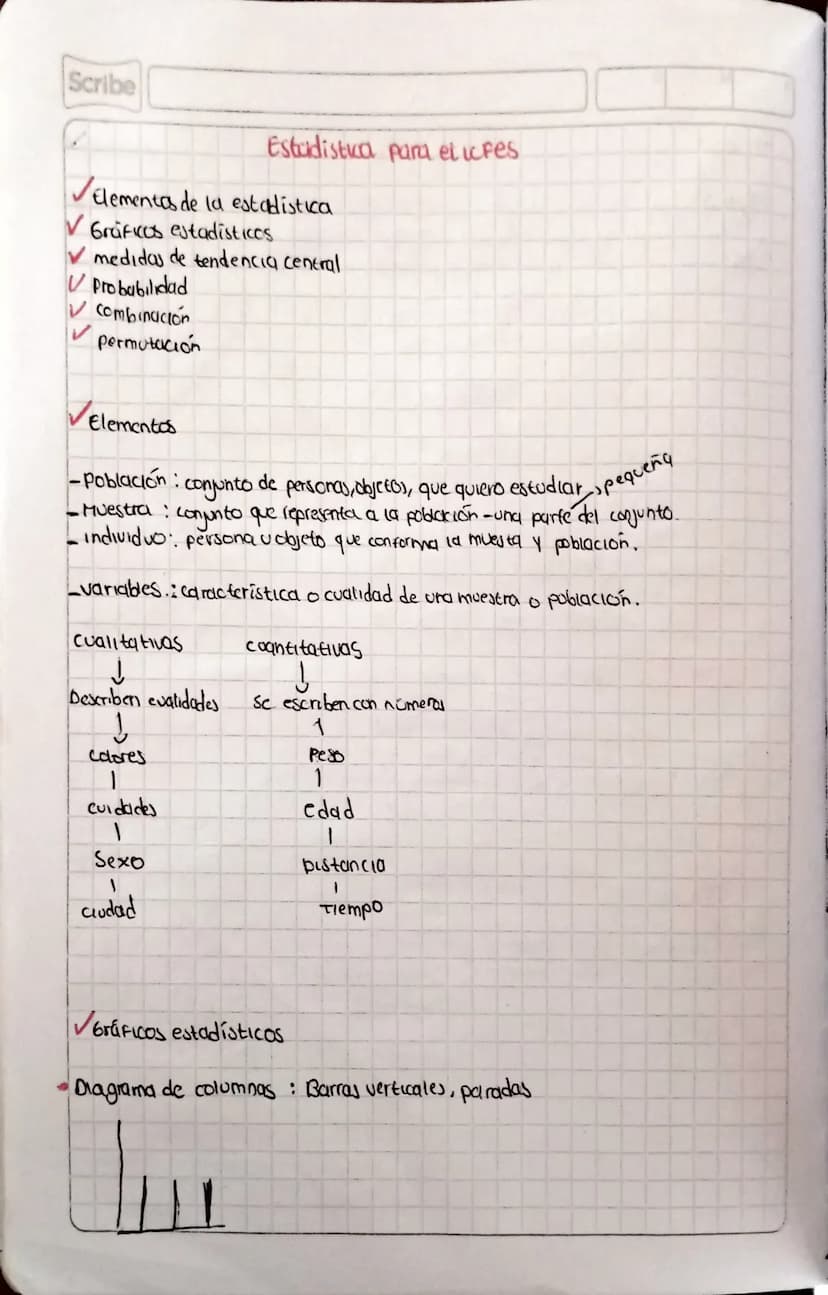 Scribe
Estadistica para el ICFES
✓ Elementos de la estadística
✓ Gráficos estadísticos
✓ medidas de tendencia central
✓ Probabilidad
✓ combinación
✓ permutación
✓ Elementos
- Población : conjunto de personas, objetos, que quiero estudiar → pequeña
- Muestra : conjunto que representa a la población - una parte del conjunto.
- individuo : persona u objeto que conforma la muesta y población.
- variables. : característica o cualidad de una muestra o población.
cualitativas coantitativas
Describen cualidades Se escriben con números
colores Peso
cuidades Edad
Sexo Distancia
ciudad Tiempo
✓ Gráficos estadísticos
• Diagrama de columnas : Barras verticales, paradas